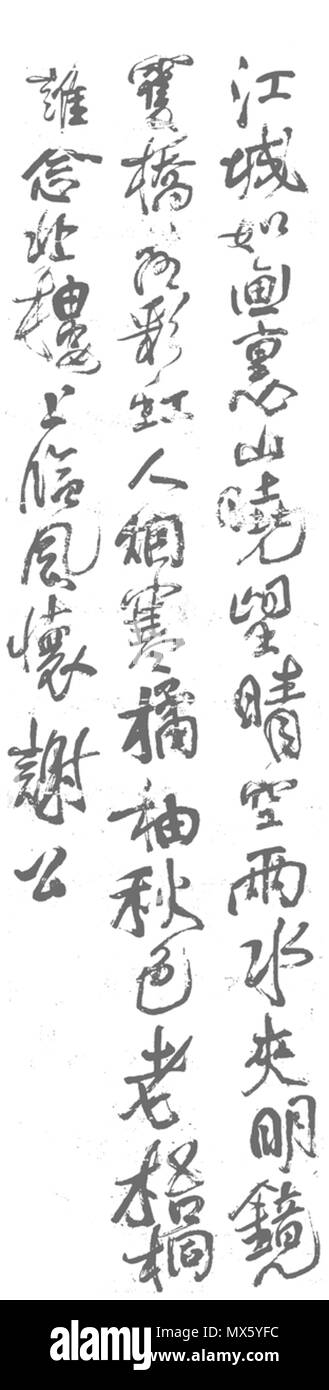 江城如画裏山曉望晴空兩水夾明鏡
雙橋落彩虹人烟寒橘柚秋色老梧桐
誰念北樓上臨風懷謝公
alamy
Image ID: MX5YFC
www.alamy.com